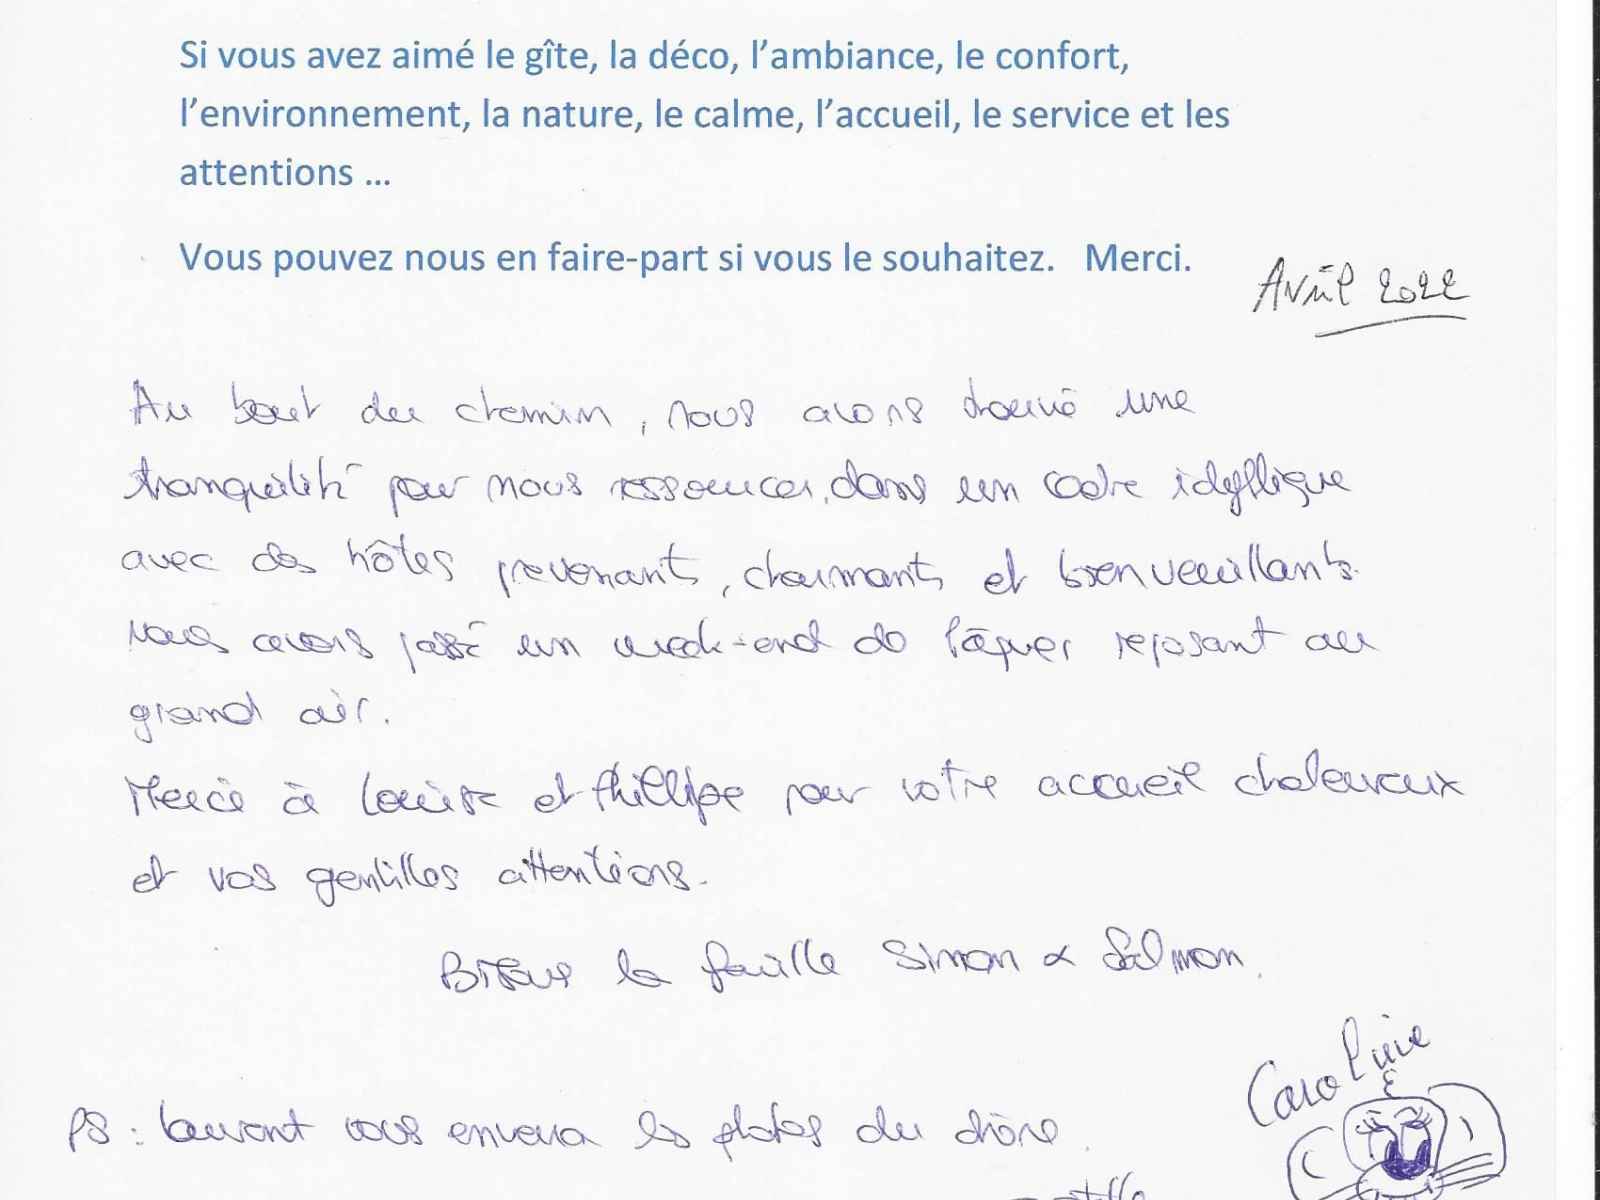 Si vous avez aimé le gîte, la déco, l’ambiance, le confort,
l’environnement, la nature, le calme, l’accueil, le service et les
attentions ...
Vous pouvez nous en faire-part si vous le souhaitez. Merci.
Avril 2022
Au bout du chemin, nous avons trouvé une
tranquilité pour nous ressourcer, dans un cadre idyllique
avec des hôtes prevenants, charmants et bienveuillants.
Nous avons passé un week-end de Pâques reposant au
grand air.
Merci à Louise et Phillipe pour votre accueil chaleureux
et vos gentilles attentions.
la famille Simon & Salmon.
Caroline
PS : Laurent vous enverra les photos du drône.